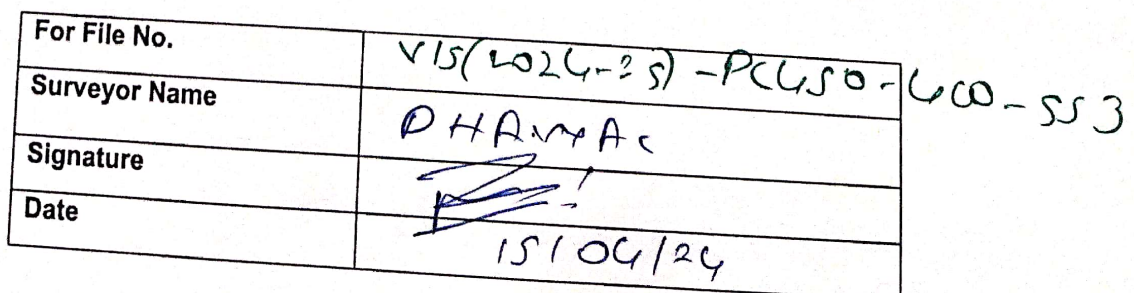 For File No. VIS(2024-25)-PC450-400-553
Surveyor Name
Signature
Date 15/04/24